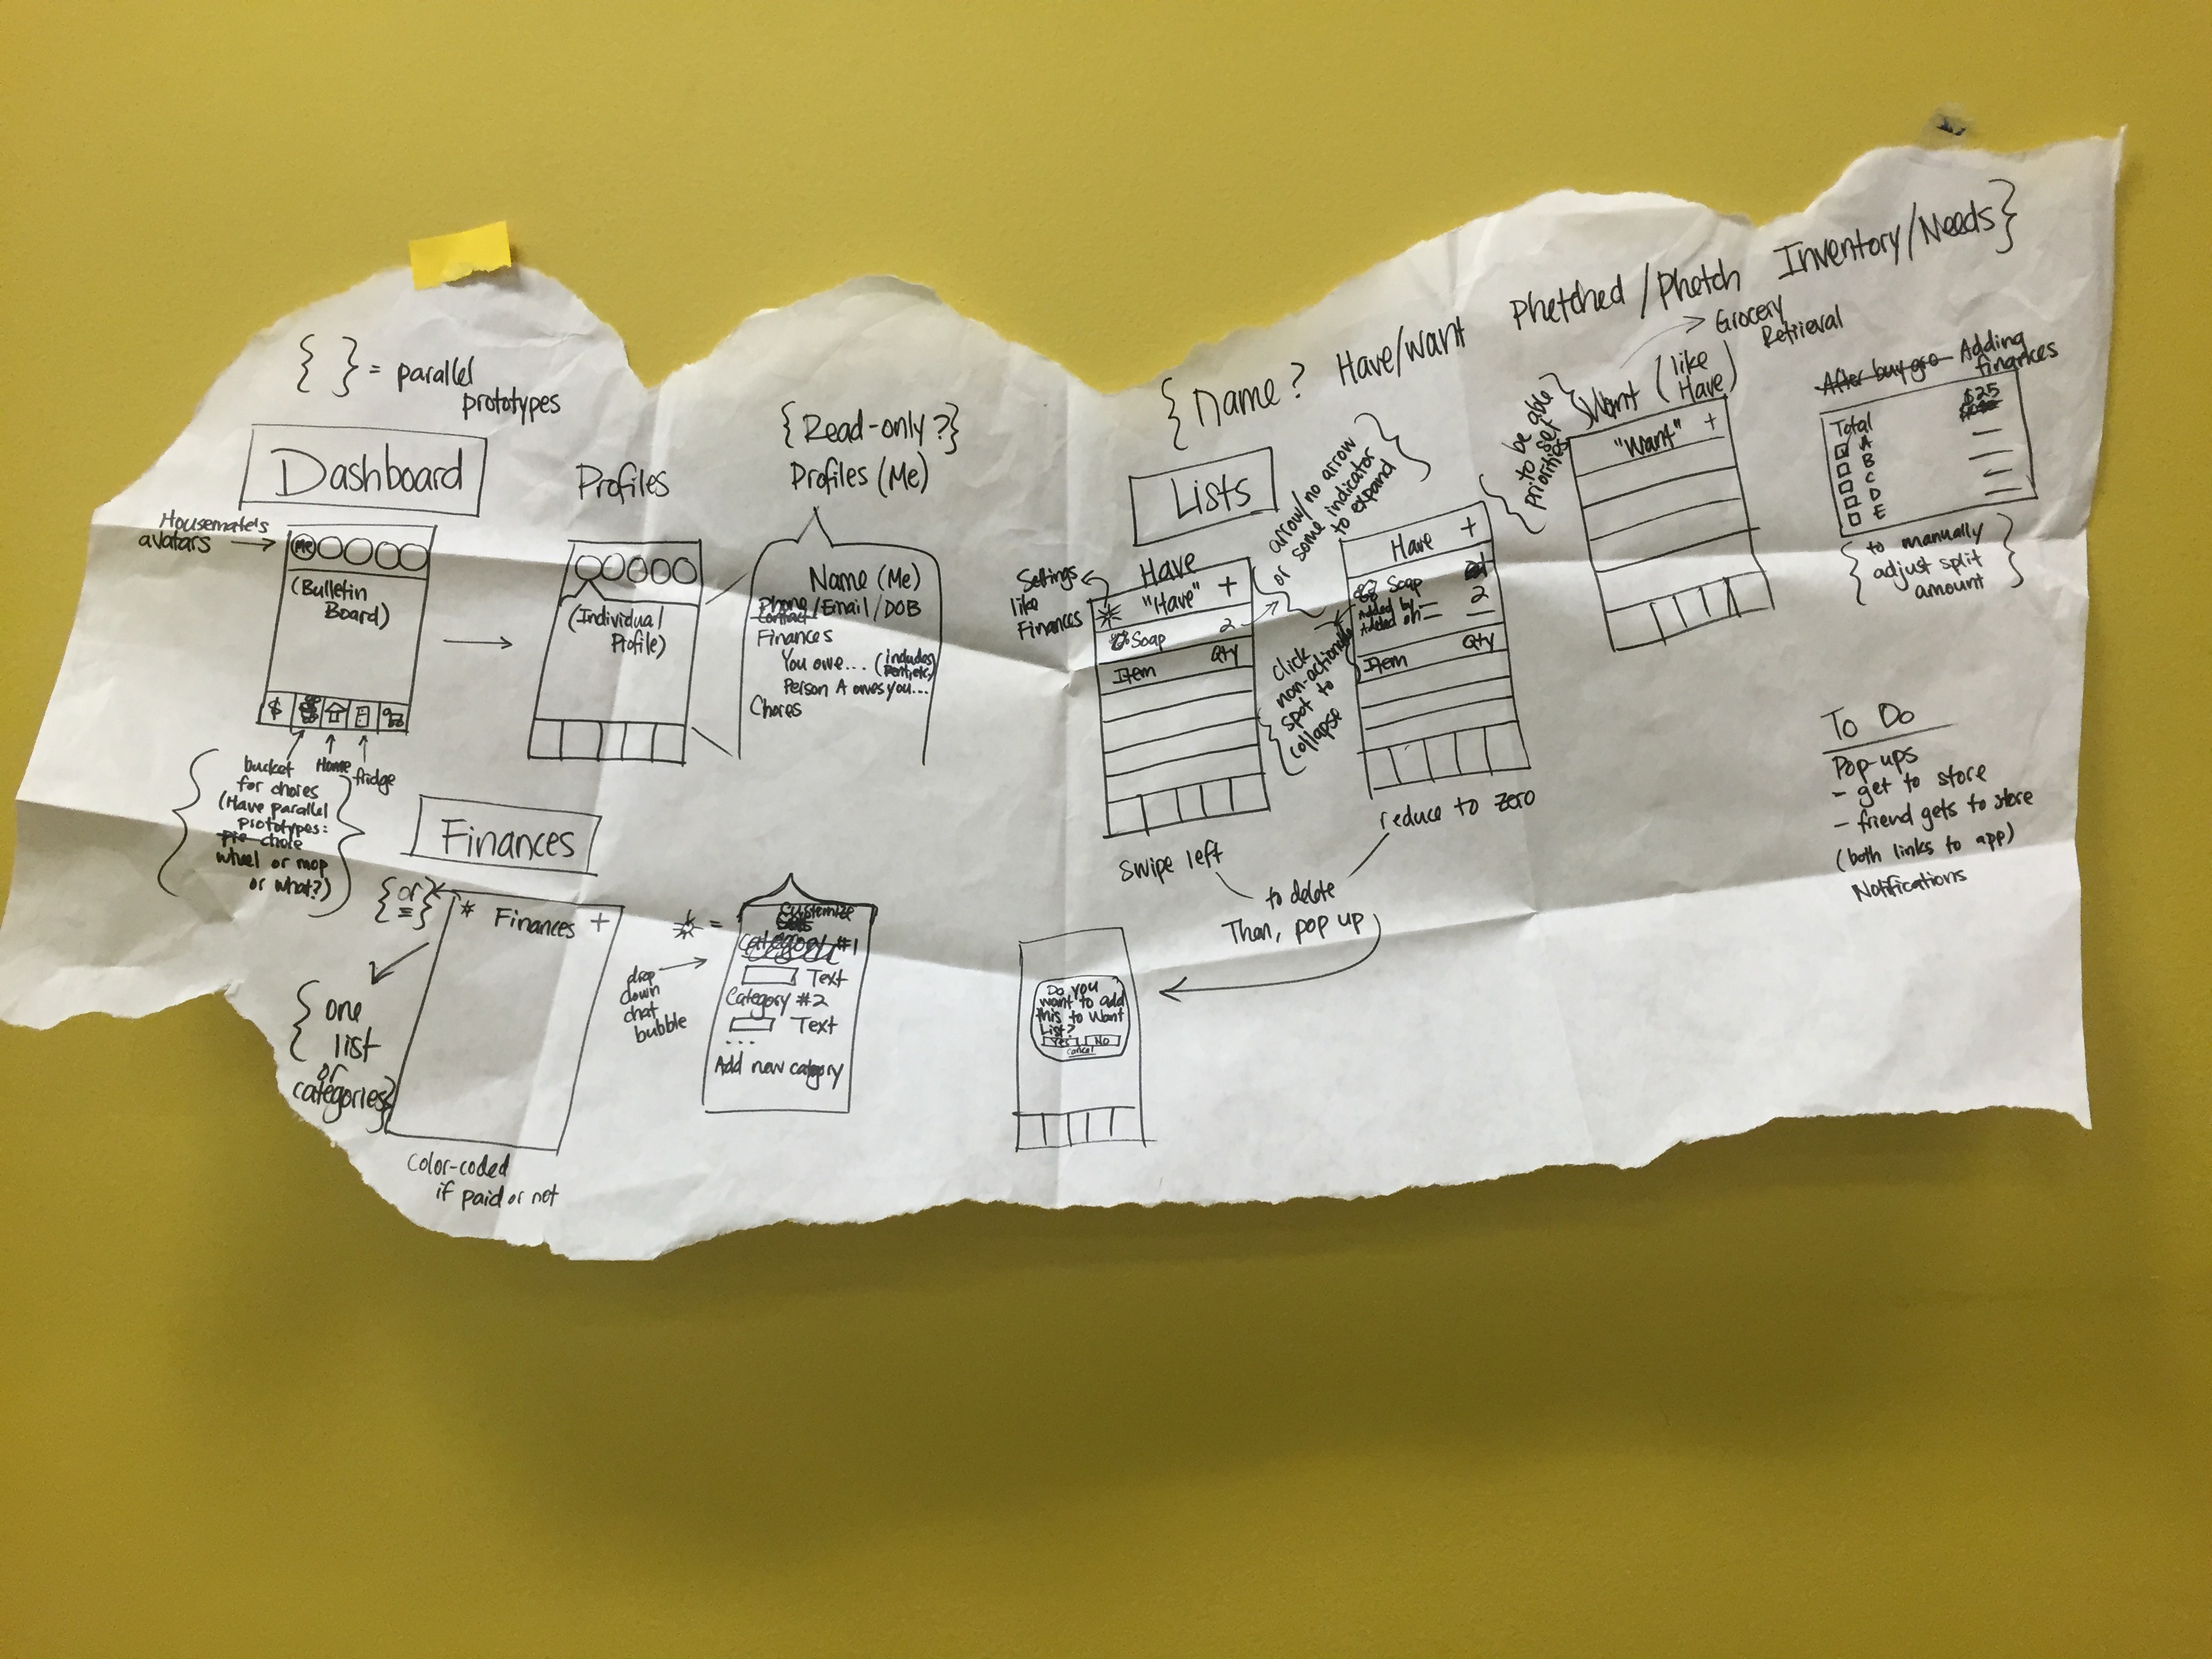 { } = parallel
prototypes
Dashboard
Housemate's
avatars
Me
(Bulletin
Board)
$
bucket
for chores
(Have parallel
prototypes:
pie chore
wheel or mop
or what?)
Home
fridge
Profiles
(Individual
Profile)
{Read-only?}
Profiles (Me)
Name (Me)
Phone/Email/DOB
Contact
Finances
You owe... (includes
Rent, etc.)
Person A owes you...
Chores
Finances
{or
≡}
* Finances +
{one
list
or
categories}
Color-coded
if paid or not
* =
drop
down
chat
bubble
Customize
Category #1
Text
Category #2
Text
...
Add new category
{Name? Have/want Phetched/Phetch Inventory/Needs}
Lists
Settings
like
Finances
Have
* "Have" +
Soap 2
Item Qty
arrow/no arrow
or some indicator
to expand
click
non-actionable
spot to
collapse
Have +
Soap 2
Added by —
Added on —
Item Qty
Swipe left
reduce to zero
to delete
Then, pop up
Do you
want to add
this to Want
List?
Yes No
Cancel
{to be able
to set
priorities}
Want (like
Have)
Grocery
Retrieval
"Want" +
After buy gro Adding
finances
Total $25
A
B
C
D
E
{to manually
adjust split
amount}
To Do
Pop-ups
- get to store
- friend gets to store
(both links to app)
Notifications